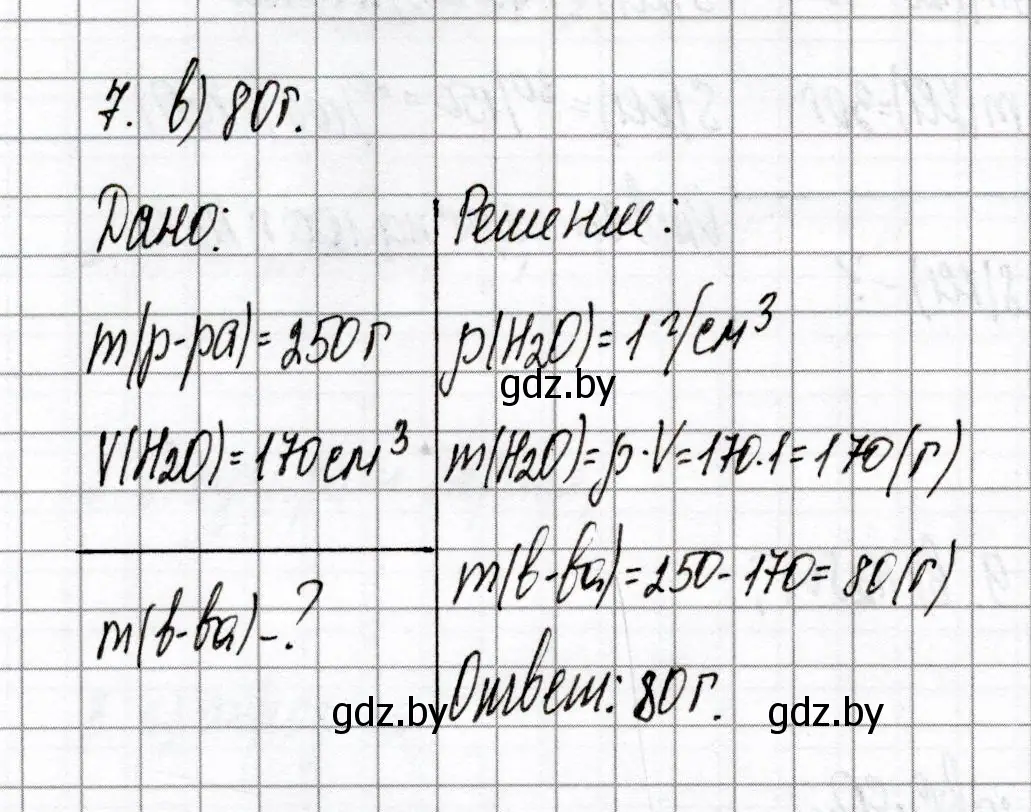 7. в) 80г.
Дано:
m(р-ра) = 250г
V(H2O) = 170см³
m(в-ва) - ?
Решение:
ρ(H2O) = 1 г/см³
gdz.by
m(H2O) = ρ · V = 170 · 1 = 170 (г)
m(в-ва) = 250 - 170 = 80 (г)
Ответ: 80г.
gdz.by
gdz.by